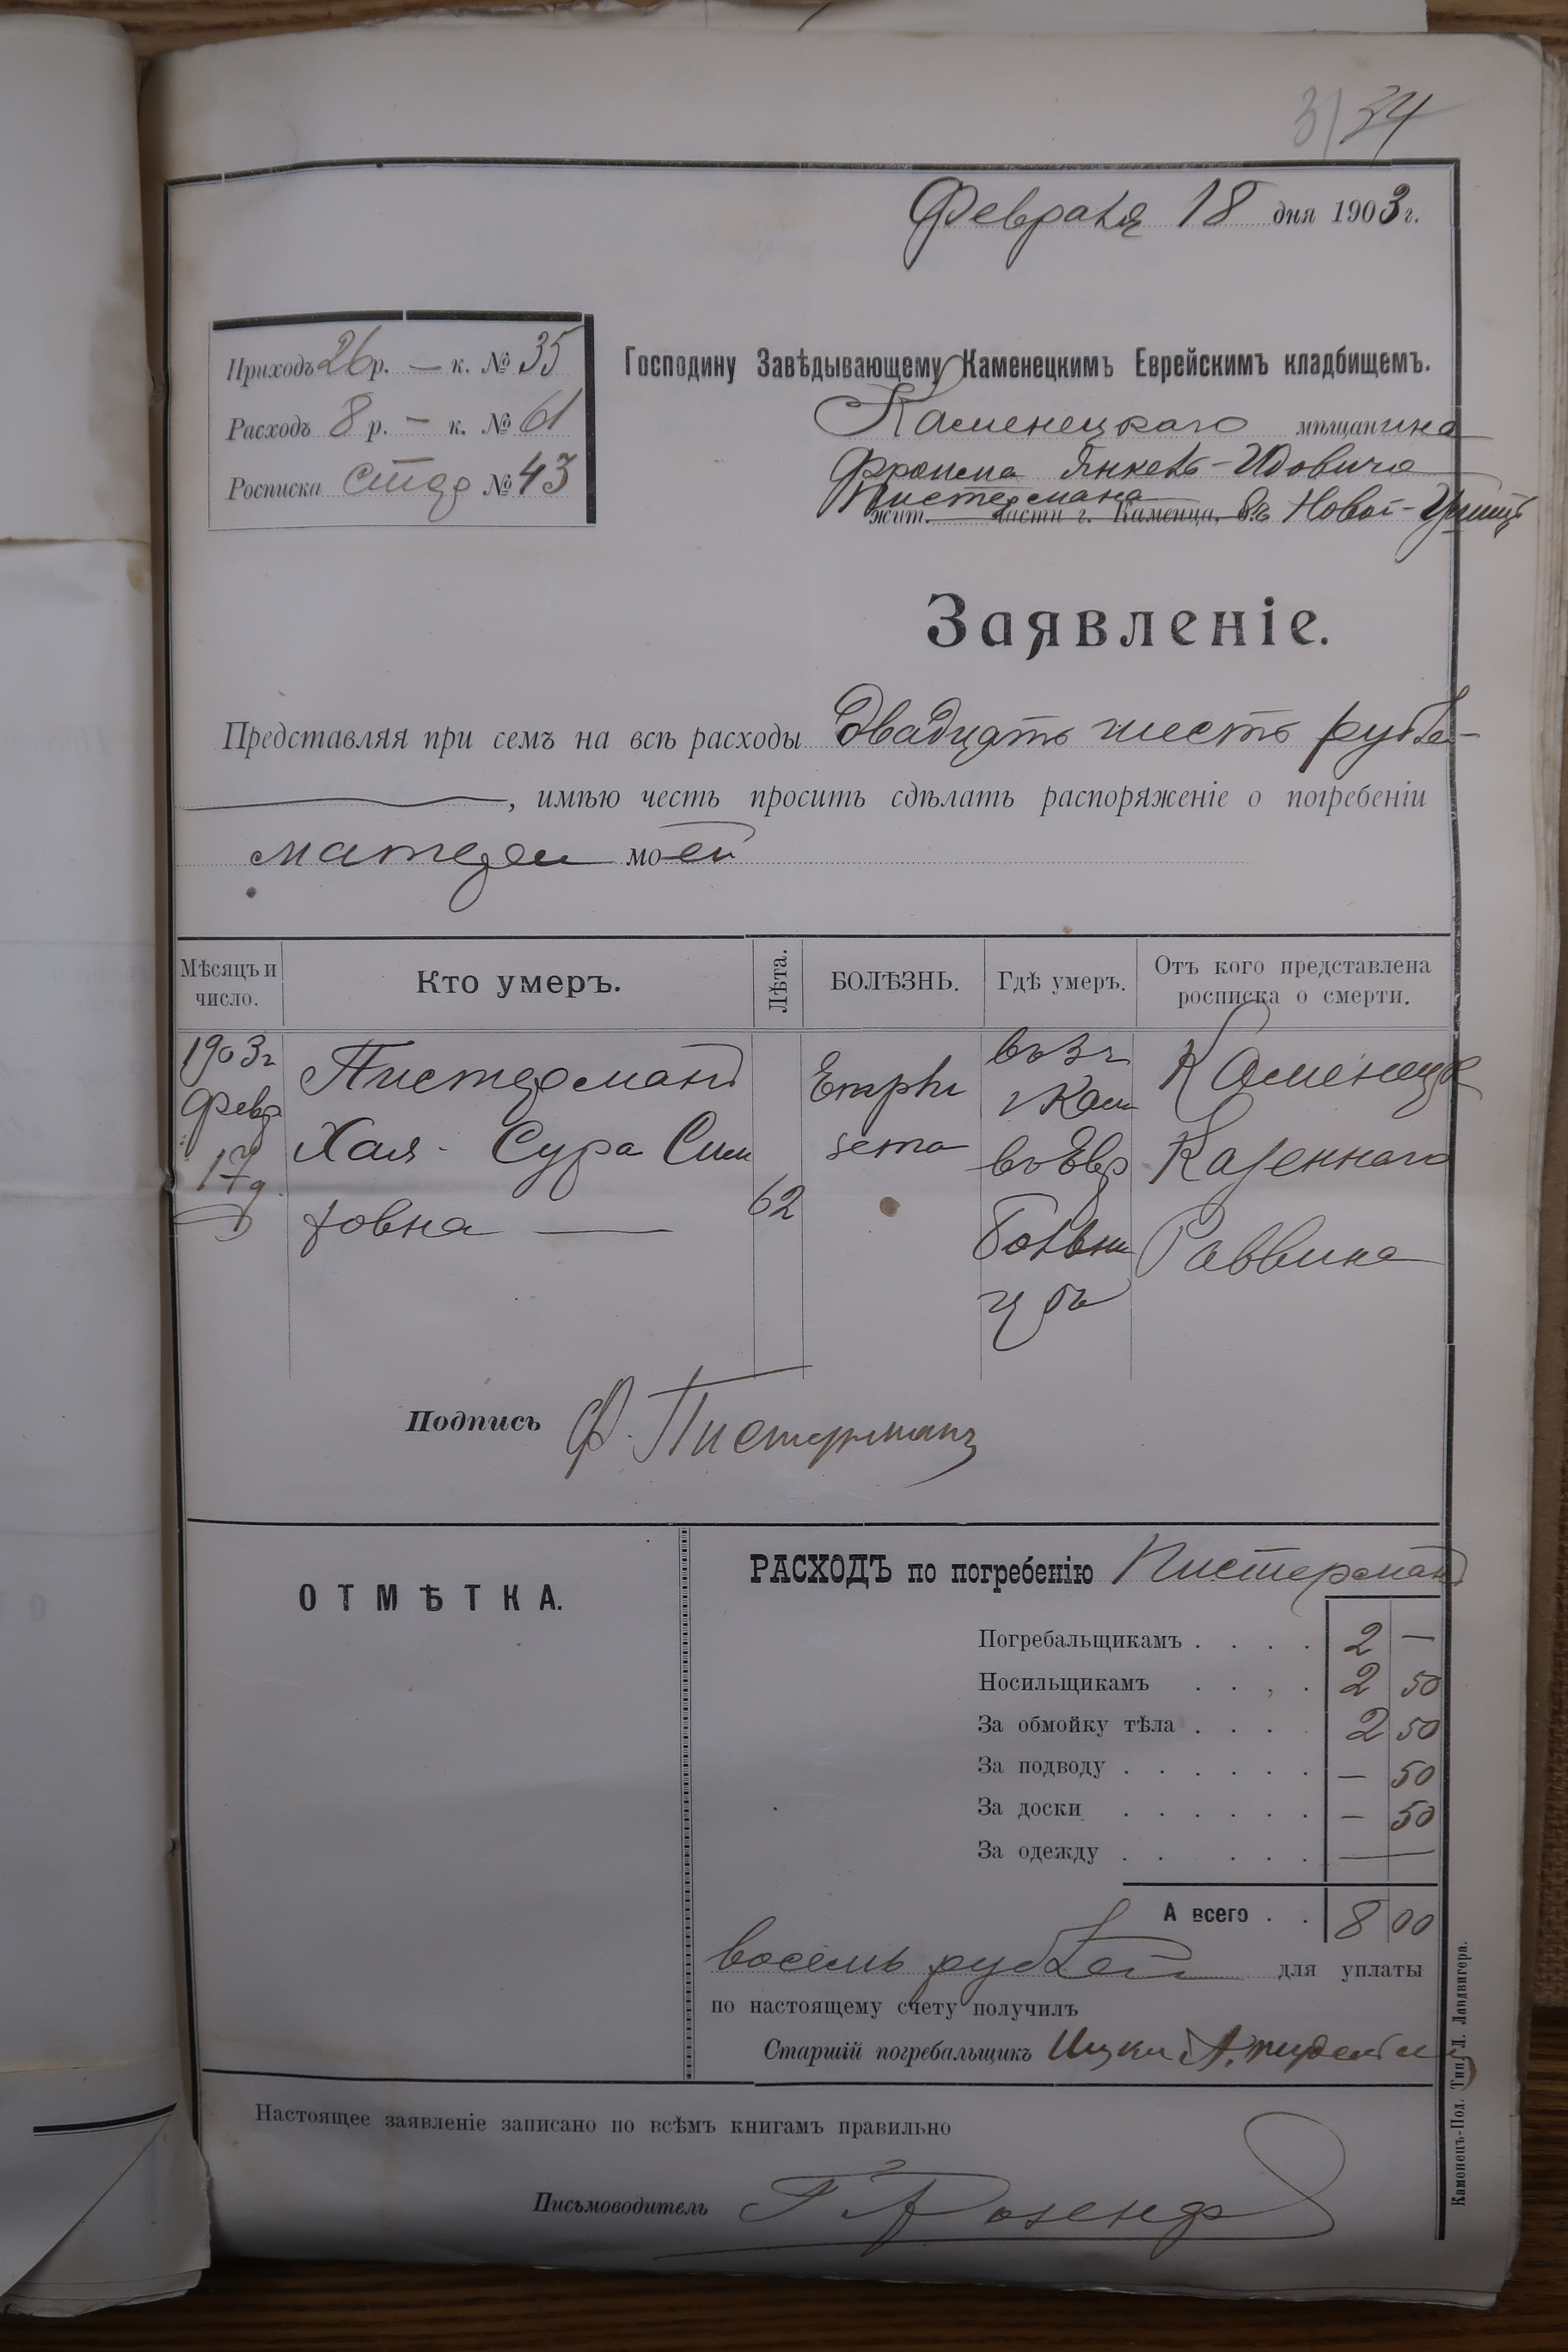 31 34
Февраля 18 дня 1903 г.
Приходъ 26 р. — к. № 35
Расходъ 8 р. — к. № 61
Росписка № 43
Господину Завѣдывающему Каменецкимъ Еврейскимъ кладбищемъ.
Каменецкаго мѣщанина
Фроима Янкель-Идовича
Пистермана
жит. части г. Каменца, въ Новой-Ушицѣ
Заявленіе.
Представляя при семъ на всѣ расходы Двадцать шесть рубле-
, имѣю честь просить сдѣлать распоряженіе о погребеніи
матери моей
Мѣсяцъ и число. Кто умеръ. Лѣта. БОЛѢЗНЬ. Гдѣ умеръ. Отъ кого представлена росписка о смерти.
1903 г Пистерманъ Emphi въ 3 ч Каменецк
Февр Хая - Сура Сим sema г Кам Казеннаго
17 д. ховна — 62 въ Евр Раввина
Больни
цѣ
Подпись Ф. Пистерманъ
ОТМѢТКА.
РАСХОДЪ по погребенію Пистерманъ
Погребальщикамъ . . . . 2 —
Носильщикамъ . . , . 2 50
За обмойку тѣла . . . . 2 50
За подводу . . . . . . — 50
За доски . . . . . . — 50
За одежду . . . . . . —
А всего . . 8 00
восемь рублей для уплаты
по настоящему счету получилъ
Старшій погребальщикъ Ицко
Настоящее заявленіе записано по всѣмъ книгамъ правильно
Письмоводитель
Каменецъ-Под. Тип. Л. Ландвигера.